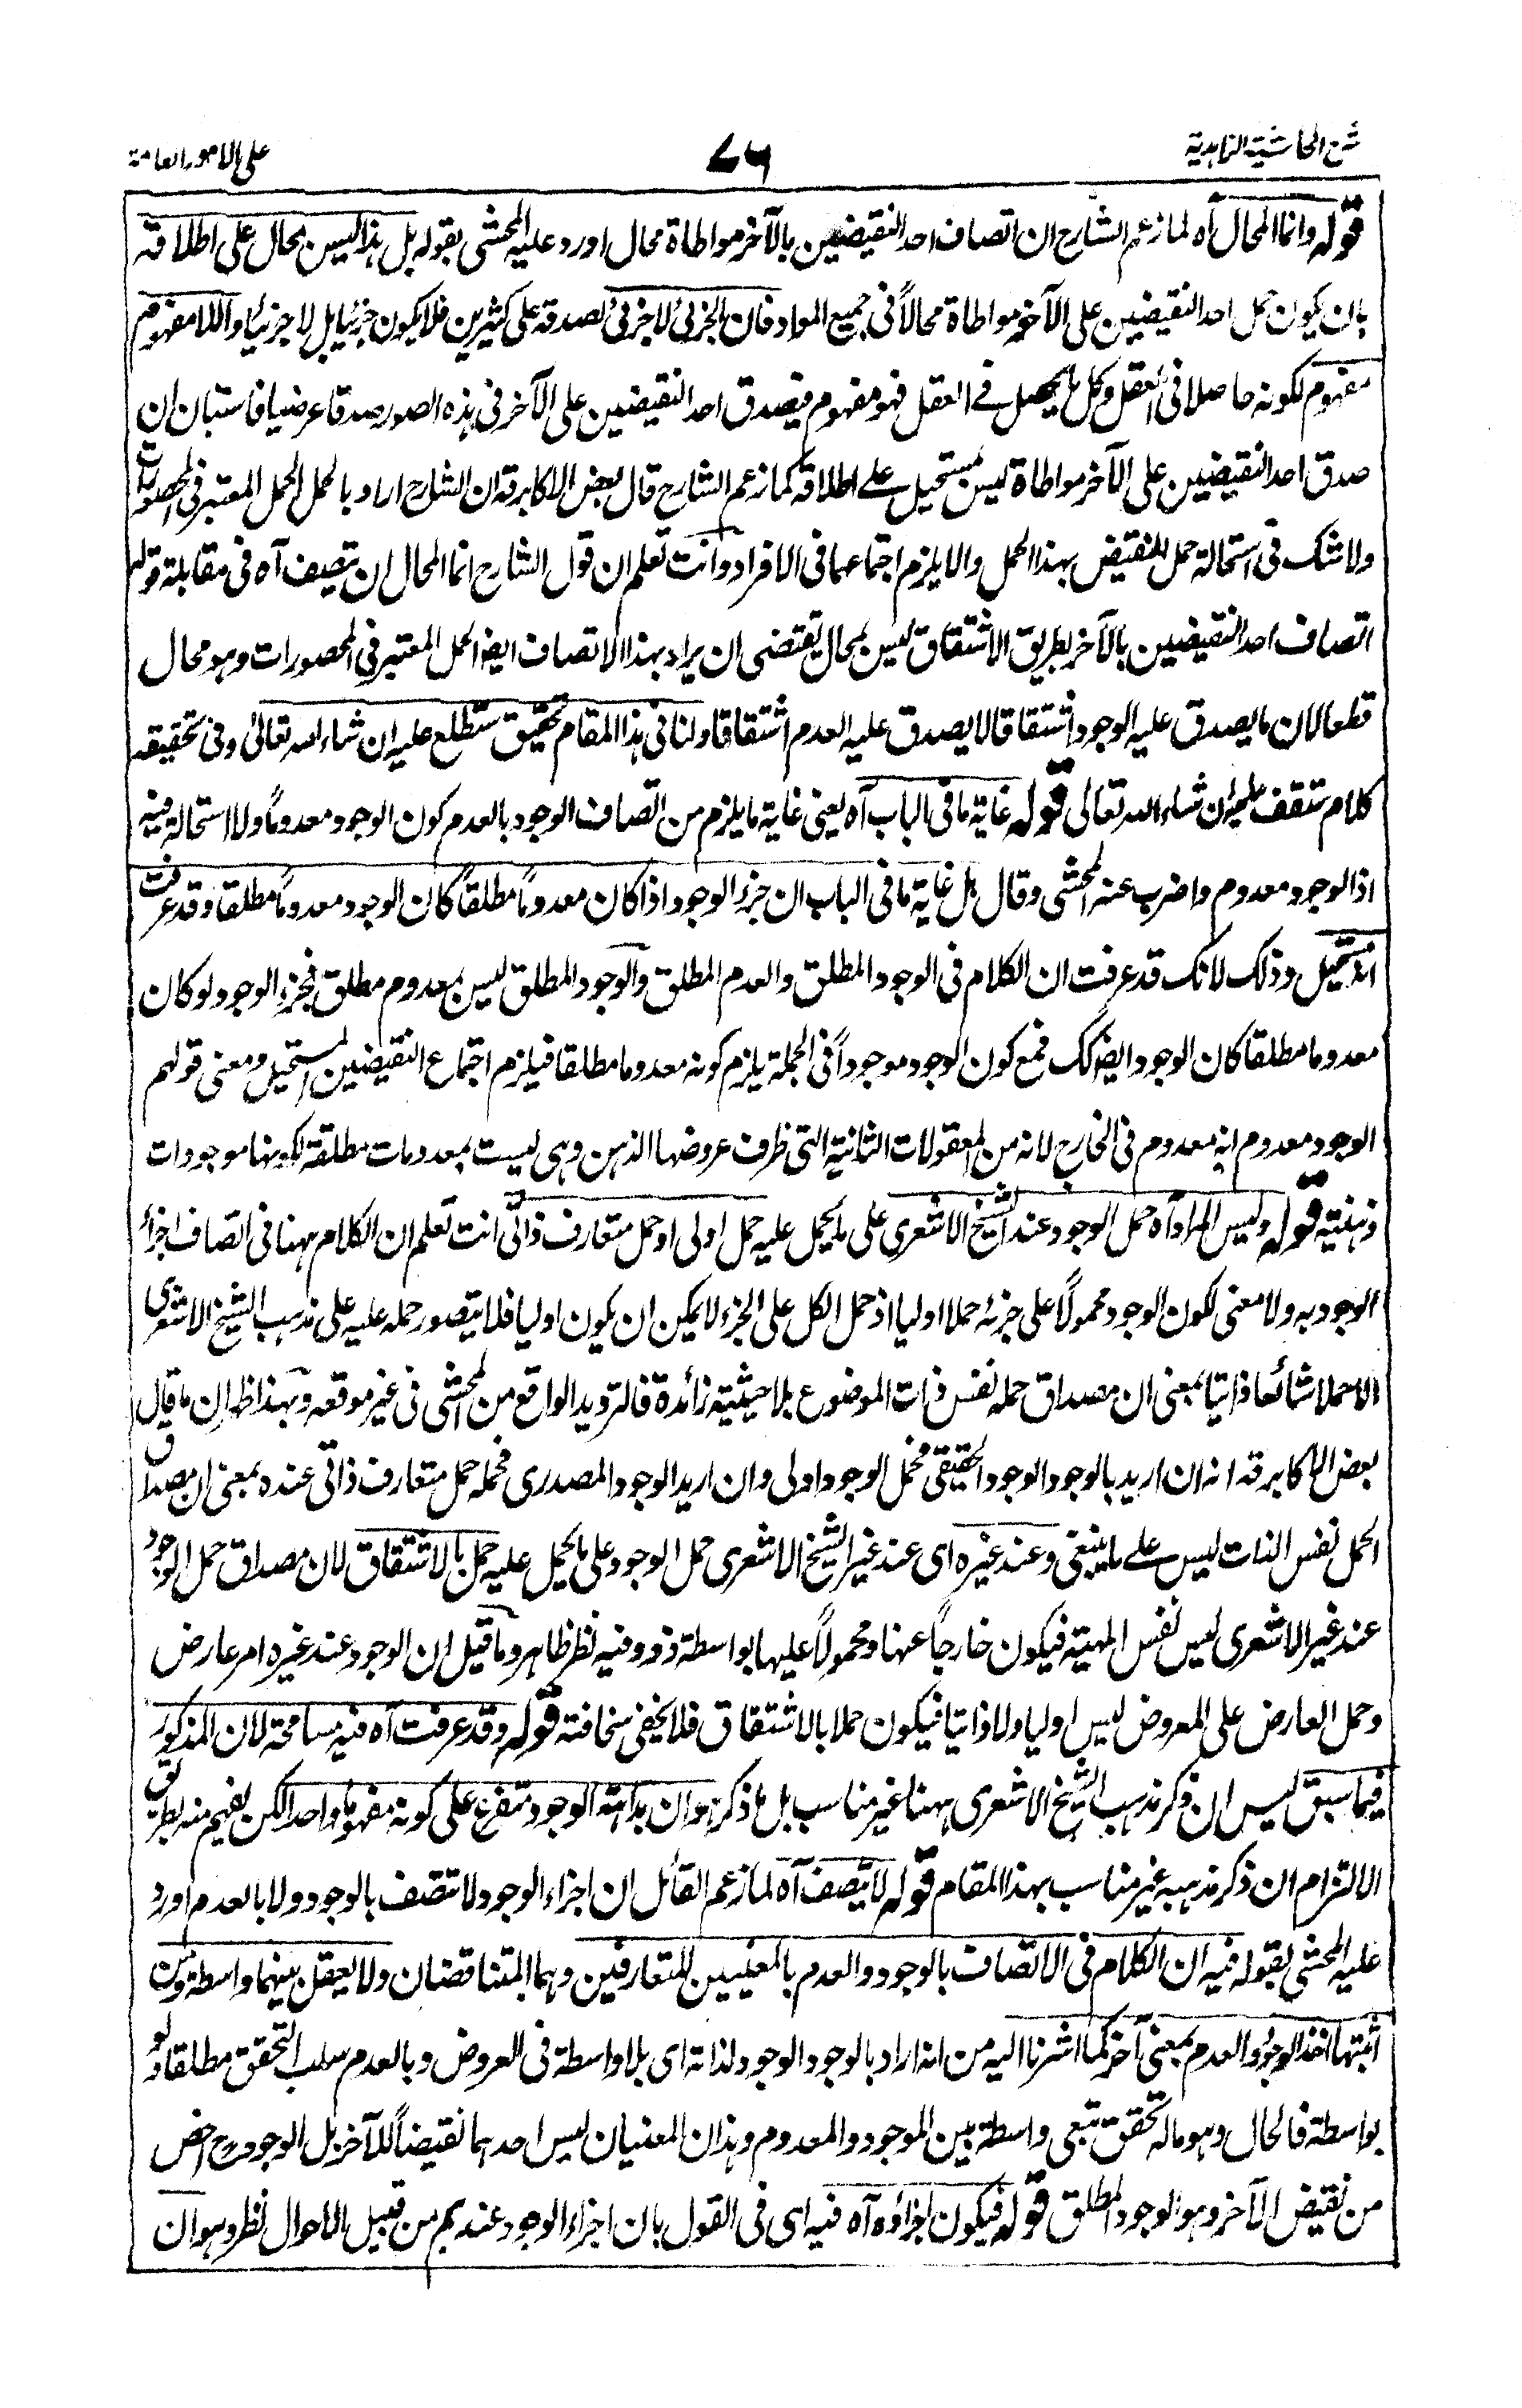 شرح الحاشية الزاهدية
۷۶
على الامور العامة
قوله وانما المحال آه لما زعم الشارح ان اتصاف احد النقيضين بالآخر مواطاة محال اورد عليه المحشى بقوله بل هذا ليس بمحال على اطلاقه
بان يكون حمل احد النقيضين على الآخر مواطاة محالاً فى جميع المواد فان الجزئى لاجزئى لصدقه على كثيرين فلا يكون جزئيا بل لاجزئيا واللامفهوم
مفهوم لكونه حاصلا فى العقل وكل ما يحصل فے العقل فهو مفهوم فيصدق احد النقيضين على الآخر فى هذه الصور صدقا عرضيا فاستبان ان
صدق احد النقيضين على الآخر مواطاة ليس بمستحيل على اطلاقه كما زعم الشارح قال بعض الاكابر قه ان الشارح اراد بالحمل الحمل المعتبر فى المحصورات
ولا شك فى استحالة حمل النقيض بهذا الحمل والا يلزم اجتماعهما فى الافراد وانت تعلم ان قول الشارح انما المحال ان يتصف آه فى مقابلة قوله
اتصاف احد النقيضين بالآخر بطريق الاشتقاق ليس بمحال يقتضى ان يراد بهذا الاتصاف ايضا الحمل المعتبر فى المحصورات وهو محال
قطعا لان ما يصدق عليه الوجود اشتقاقا لا يصدق عليه العدم اشتقاقا ولنا فى هذا المقام تحقيق ستطلع عليه ان شاء الله تعالى وفى تحقيقه
كلام ستقف عليه ان شاء الله تعالى قوله غاية ما فى الباب آه يعنى غاية ما يلزم من اتصاف الوجود بالعدم كون الوجود معدوماً ولا استحالة فيه
اذ الوجود معدوم واضرب عنه المحشى وقال بل غاية ما فى الباب ان جزء الوجود اذا كان معدوماً مطلقاً كان الوجود معدوماً مطلقا وقد عرفت
انه مستحيل وذلك لانك قد عرفت ان الكلام فى الوجود المطلق والعدم المطلق والوجود المطلق ليس بمعدوم مطلق فجزء الوجود لو كان
معدوما مطلقا كان الوجود ايضا كك فمع كون الوجود موجوداً فى الجملة يلزم كونه معدوما مطلقا فيلزم اجتماع النقيضين المستحيل ومعنى قولهم
الوجود معدوم انه معدوم فى الخارج لانه من المعقولات الثانية التى ظرف عروضها الذهن وهى ليست بمعدومات مطلقة لكونها موجودات
ذهنية قوله وليس المراد آه حمل الوجود عند الشيخ الاشعرى على ما يحمل عليه حمل اولى او حمل متعارف ذاتى انت تعلم ان الكلام ههنا فى اتصاف اجزاء
الوجود به ولا معنى لكون الوجود محمولاً على جزئه حملا اوليا اذ حمل الكل على الجزء لا يمكن ان يكون اوليا فلا يتصور حمله عليه على مذهب الشيخ الاشعرى
الا حملا شائعا ذاتيا بمعنى ان مصداق حمله نفس ذات الموضوع بلا حيثية زائدة فالترديد الواقع من المحشى فى غير موقعه وبهذا ظهر ان ما قال
بعض الاكابر قه انه ان اريد بالوجود الوجود الحقيقى فحمل الوجود اولى وان اريد الوجود المصدرى فحمله حمل متعارف ذاتى عنده بمعنى ان مصداق
الحمل نفس الذات ليس علے ما ينبغى وعند غيره اى عند غير الشيخ الاشعرى حمل الوجود على ما يحمل عليه حمل بالاشتقاق لان مصداق حمل الوجود
عند غير الاشعرى ليس نفس المهية فيكون خارجاً عنها ومحمولاً عليها بواسطة ذو وفيه نظر ظاهر وما قيل ان الوجود عند غيره امر عارض
وحمل العارض على المعروض ليس اوليا ولا ذاتيا فيكون حملا بالاشتقاق فلا يخفى سخافته قوله وقد عرفت آه فيه مسامحة لان المذكور
فيما سبق ليس ان ذكر مذهب الشيخ الاشعرى ههنا غير مناسب بل ما ذكر هو ان بداهة الوجود متفرع على كونه مفهوما واحدا لكن يفهم منه بطريق
الالتزام ان ذكر مذهبه غير مناسب بهذا المقام قوله لا يتصف آه لما زعم القائل ان اجزاء الوجود لا تتصف بالوجود ولا بالعدم اورد
عليه المحشى بقوله فيه ان الكلام فى الاتصاف بالوجود والعدم بالمعنيين المتعارفين وهما المتناقضان ولا يعقل بينهما واسطة ومن
اثبتها اخذ الوجود والعدم بمعنى آخر كما اشرنا اليه من انه اراد بالوجود الوجود لذاته اى بلا واسطة فى العروض وبالعدم سلب التحقق مطلقا ولو
بواسطة فالحال وهو ماله تحقق تبعى واسطة بين الموجود والمعدوم وهذان المعنيان ليس احدهما نقيضاً للآخر بل الوجود ح اخص
من نقيض الآخر وهو الوجود المطلق قوله فيكون اجزاؤه آه فيه اى فى القول بان اجزاء الوجود عندهم من قبيل الاحوال نظر وهو ان